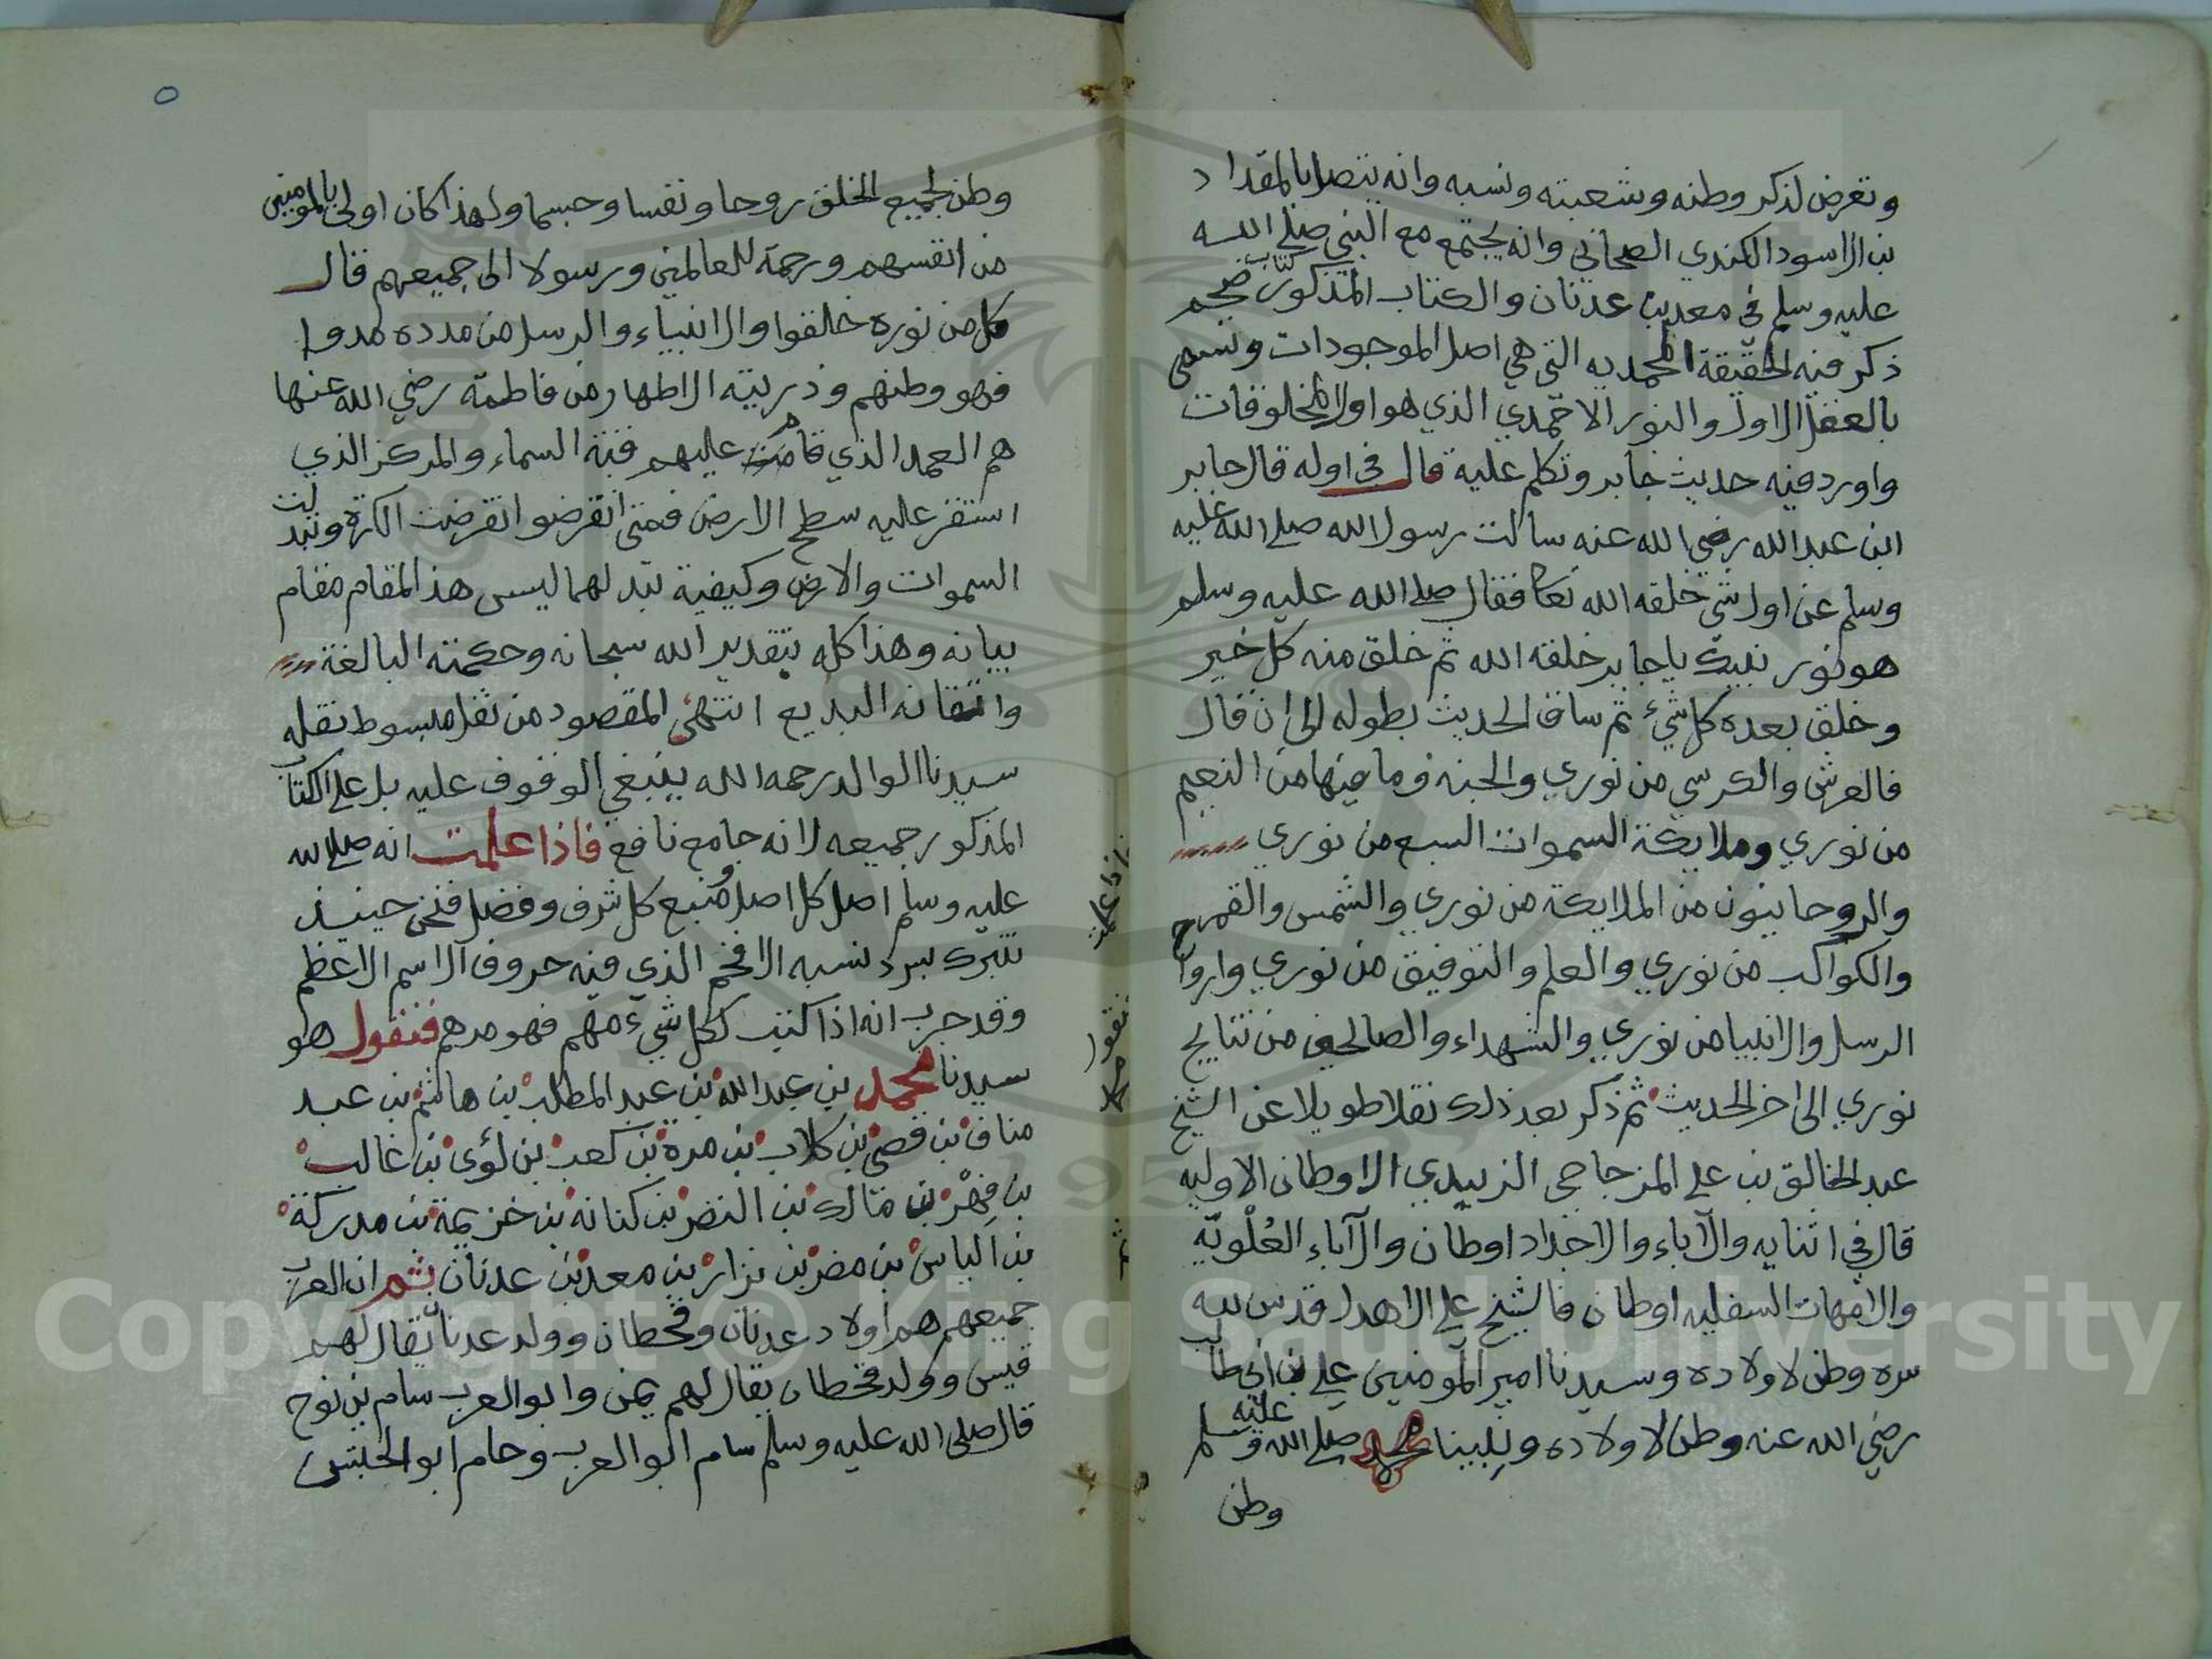 وتعرض لذكر وطنه وشعبته ونسبه وانه يتصل بالمقداد
بن الاسود الكندي الصحابي وانه يجتمع مع النبي صلى الله
عليه وسلم في معد بن عدنان والكتاب المذكور كتاب ضخم
ذكر فيه الحقيقة المحمديه التي هي اصل الموجودات وتسمى
بالعقل الاول والنور الاحمدي الذي هو اول المخلوقات
واورد فيه حديث جابر وتكلم عليه قال في اوله قال جابر
ابن عبد الله رضي الله عنه سالت رسول الله صلى الله عليه
وسلم عن اول شي خلقه الله تعا فقال صلى الله عليه وسلم
هو نور نبيك يا جابر خلقه الله ثم خلق منه كل خير
وخلق بعده كل شيء ثم ساق الحديث بطوله الى ان قال
فالعرش والكرسي من نوري والجنه وما فيها من النعيم
من نوري وملايكة السموات السبع من نوري
والروحانيون من الملايكة من نوري والشمس والقمر
والكواكب من نوري والعلم والتوفيق من نوري وارواح
الرسل والانبيا من نوري والشهداء والصالحين من نتايج
نوري الى اخر الحديث ثم ذكر بعد ذلك نقلا طويلا عن الشيخ
عبد الخالق بن علي المزجاجي الزبيدي الاوطان الاوليه
قال في اثنايه والاباء والاجداد اوطان والآباء العُلْويّه
والامهات السفليه اوطان فالشيخ علي الاهدل قدس الله
سره وطن لاولاده وسيدنا امير المومنين علي بن ابي طالب
رضي الله عنه وطن لاولاده ونبينا محمد صلى الله عليه وسلم
وطن
وطن لجميع الخلق روحا ونفسا وجسما ولهذا كان اولى بالمومنين
من انفسهم ورحمة للعالمين ورسولا الى جميعهم قال
كل من نوره خلقوا والانبياء والرسل من مدده مدوا
فهو وطنهم وذريته الاطهار من فاطمة رضي الله عنها
هم العمد الذي قامت عليهم قبة السماء والمركز الذي
استقر عليه سطح الارض فمتى انقرضو انقرضت الكرة وتبدلت
السموات والارض وكيفية تبدلهما ليس هذا المقام مقام
بيانه وهذا كله بتقدير الله سبحانه وحكمته البالغة
واتقانه البديع انتهى المقصود من نقل مبسوط نقله
سيدنا الوالد رحمه الله ينبغي الوقوف عليه بل على الكتاب
المذكور جميعه لانه جامع نافع فاذا علمت انه صلى الله
عليه وسلم اصل كل اصل ومنبع كل شرف وفضل فنحن حينيذ
نتبرك بسرد نسبه الافخم الذي فيه حروف الاسم الاعظم
وقد جرب انه اذا كتب لكل شيء مهم فهو مرهم فنقول هو
سيدنا محمد بن عبد الله بن عبد المطلب بن هاشم بن عبد
مناف بن قصي بن كلاب بن مرة بن كعب بن لؤى بن غالب
بن فِهْر بن مالك بن النضر بن كنانه بن خزيمة بن مدركة
بن الياس بن مضر بن نزار بن معد بن عدنان ثم ان العرب
جميعهم هم اولاد عدنان وقحطان وولد عدنان يقال لهم
قيس وولد قحطان يقال لهم يمن وابو العرب سام بن نوح
قال صلى الله عليه وسلم سام ابو العرب وحام ابو الحبش
اذا علمت
نقول
محمد
ثم
Copyright © King Saud University